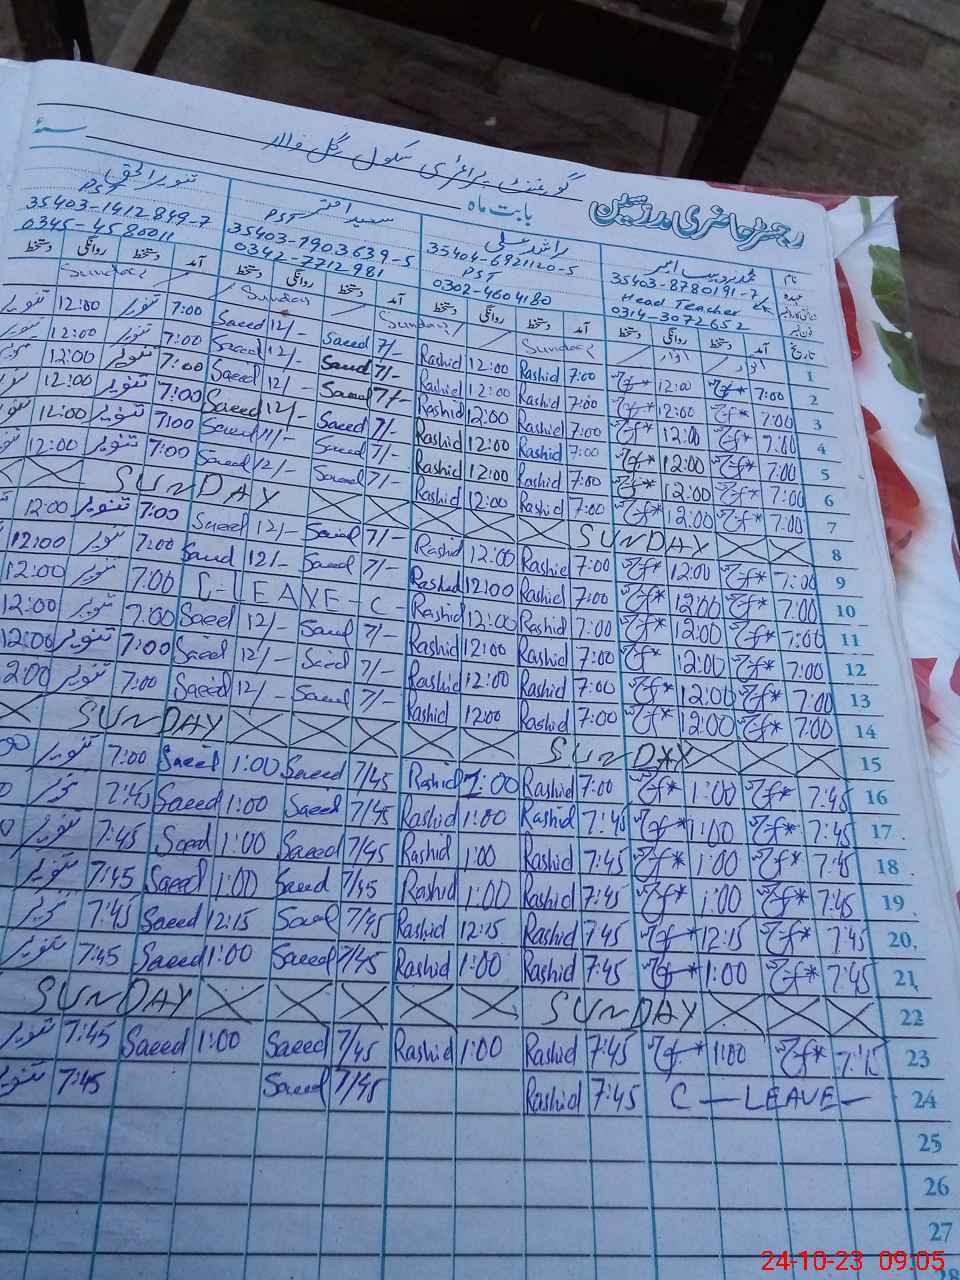 گورنمنٹ پرائمری سکول رنگل والا
رجسٹر حاضری مدرسین بابت ماہ سنہ
نام
عہدہ
تاریخ
Head Teacher
35403-8780191-7
0314-3072652
راشد علی
35404-6921120-5
PST
0302-4604180
سعید اختر PST
35403-7903639-5
0342-7712981
تنویر الحق
PST
35403-1412849-7
0345-4580011
آمد دستخط روانگی دستخط آمد دستخط روانگی دستخط آمد دستخط روانگی دستخط آمد دستخط روانگی دستخط
1 اتوار اتوار Sunday Sunday Sunday Sunday
2 7:00 12:00 7:00 Rashid 12:00 Rashid 7/- Saeed 12/- Saeed 7:00 تنویر 12:00 تنویر
3 7:00 12:00 7:00 Rashid 12:00 Rashid 7/- Saeed 12/- Saeed 7:00 تنویر 12:00 تنویر
4 7:00 12:00 7:00 Rashid 12:00 Rashid 7/- Saeed 12/- Saeed 7:00 تنویر 12:00 تنویر
5 7:00 12:00 7:00 Rashid 12:00 Rashid 7/- Saeed 12/- Saeed 7:00 تنویر 12:00 تنویر
6 7:00 12:00 7:00 Rashid 12:00 Rashid 7/- Saeed Saeed 7:00 تنویر 12:00 تنویر
7 7:00 12:00 7:00 Rashid 12:00 Rashid 7/- Saeed 12/- Saeed 7:00 تنویر 12:00
8 SUNDAY SUNDAY
9 7:00 12:00 7:00 Rashid 12:00 Rashid 7/- Saeed 12/- Saeed 7:00 تنویر 12:00
10 7:00 12:00 7:00 Rashid 12:00 Rashid 7/- Saeed 12/- Saeed 7:00 تنویر 12:00
11 7:00 12:00 7:00 Rashid 12:00 Rashid C-LEAVE-C- 7:00 تنویر 12:00
12 7:00 12:00 7:00 Rashid 12:00 Rashid 7/- Saeed 12/- Saeed 7:00 تنویر 12:00
13 7:00 12:00 7:00 Rashid 12:00 Rashid 7/- Saeed 12/- Saeed 7:00 تنویر 12:00
14 7:00 12:00 7:00 Rashid 12:00 Rashid 7/- Saeed 12/- Saeed 7:00 تنویر 2:00
15 SUNDAY SUNDAY
16 7:45 1:00 7:00 Rashid 1:00 Rashid 7/45 Saeed 1:00 Saeed 7:00 تنویر 00
17 7:45 1:00 7:45 Rashid 1:00 Rashid 7/45 Saeed 1:00 Saeed 7:45 تنویر
18 7:45 1:00 7:45 Rashid 1:00 Rashid 7/45 Saeed 1:00 Saeed 7:45 تنویر
19 7:45 1:00 7:45 Rashid 1:00 Rashid 7/45 Saeed 1:00 Saeed 7:45 تنویر
20 7:45 12:15 7:45 Rashid 12:15 Rashid 7/45 Saeed 12:15 Saeed 7:45 تنویر
21 7:45 1:00 7:45 Rashid 1:00 Rashid 7/45 Saeed 1:00 Saeed 7:45 تنویر
22 SUNDAY SUNDAY
23 7:45 1:00 7:45 Rashid 1:00 Rashid 7/45 Saeed 1:00 Saeed 7:45 تنویر
24 C-LEAVE- 7:45 Rashid 7/45 Saeed 7:45 تنویر
25
26
27
28
24-10-23 09:05